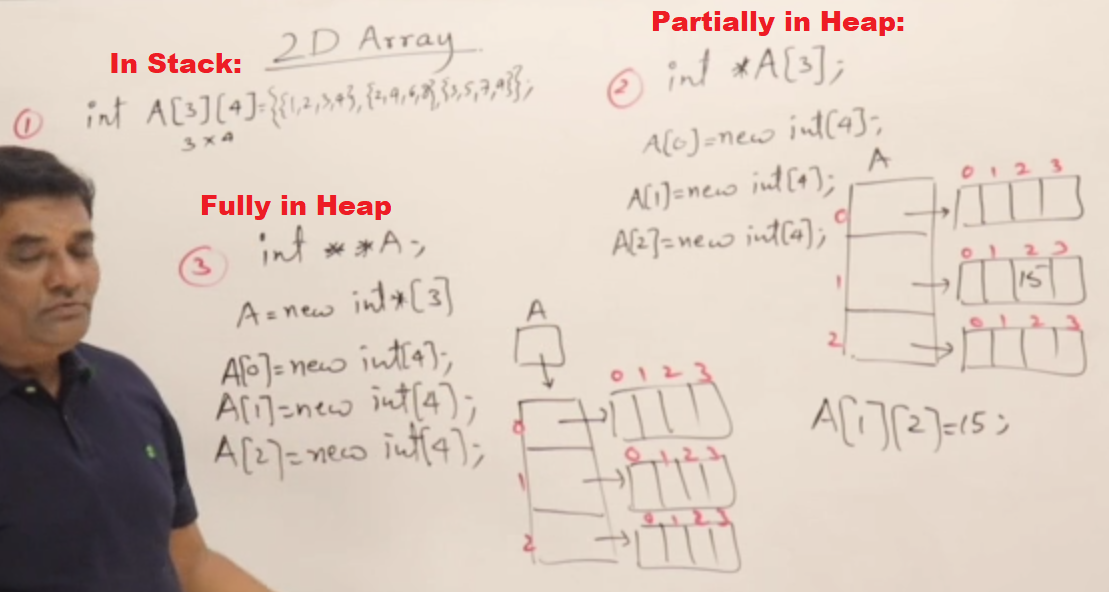 2D Array
In Stack:
① int A[3][4]={{1,2,3,4},{2,4,6,8},{3,5,7,9}};
3×4
Partially in Heap:
② int *A[3];
A[0]=new int[4];
A[1]=new int[4];
A[2]=new int[4];
A
0 1 2 3
0
0 1 2 3
1
15
0 1 2 3
2
A[1][2]=15;
Fully in Heap
③ int **A;
A=new int*[3]
A[0]=new int[4];
A[1]=new int[4];
A[2]=new int[4];
A
0 1 2 3
0
0 1 2 3
1
0 1 2 3
2